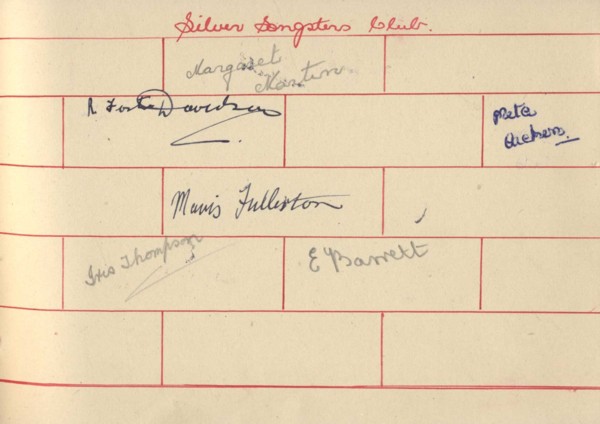 Silver Songsters Club.
Margaret
Martin.
R Foster Davidson
Meta
Mavis Fullerton
Iris Thompson
E Barrett